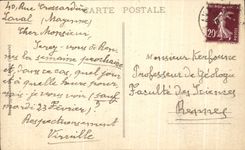 40, Rue Crossardière
Laval (Mayenne)
CARTE POSTALE
Cher Monsieur,
Serez-vous à Ren
nes la semaine prochaine
et, dans ce cas, quel jour
et à quelle heure pour-
rais-je vous voir (sauf
mardi 23 Février)?
Respectueusement
Monsieur Kerforne
Professeur de Géologie
Faculté des Sciences
Rennes
20